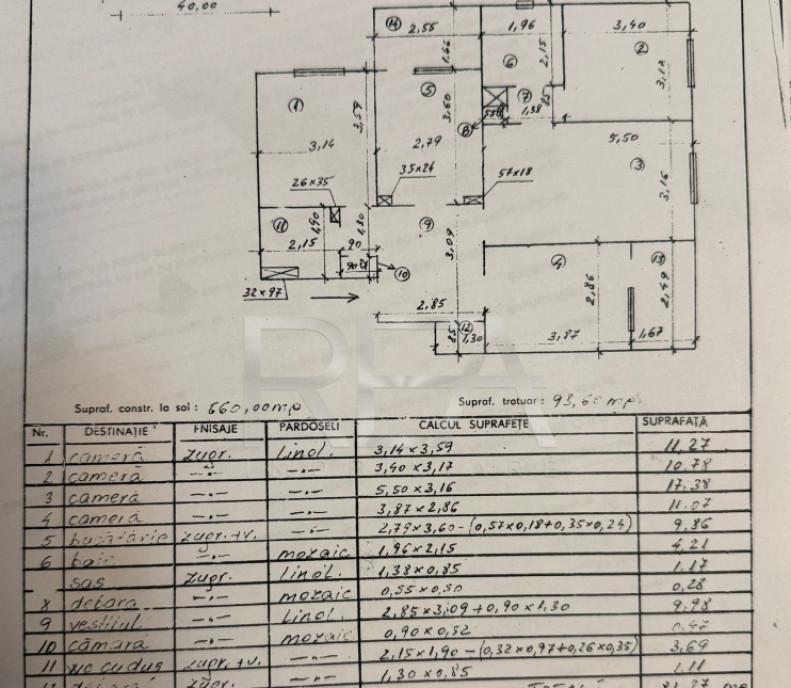 40,00
14 2,55 1,96 3,40
1,66 6 2,15 2
1 5 7 3,17
3,59 3,60 85 1,38
8
3,14 2,79 5,50 3
35x24 57x18
26x35 3,16
11 1,90 1,80 9
2,15 90 3,09 4 13
10
32x97 2,86 2,49
2,85
12
85 1,30 3,87 1,67
Supraf. constr. la sol : 660,00 mp Supraf. trotuar : 93,60 mp
Nr. DESTINAȚIE FNISAJE PARDOSELI CALCUL SUPRAFEȚE SUPRAFAȚĂ
1 cameră zugr. linol. 3,14 x 3,59 11.27
2 cameră —·— —·— 3,40 x 3,17 10.78
3 cameră —·— —·— 5,50 x 3,16 17.38
4 cameră —·— —·— 3,87 x 2,86 11.07
5 bucătărie zugr.+v. —·— 2,79 x 3,60 - (0,57x0,18+0,35x0,24) 9.86
6 baie —·— mozaic 1,96 x 2,15 4.21
sas zugr. linol. 1,38 x 0,85 1.17
8 debara —·— mozaic 0,55 x 0,50 0,28
9 vestibul —·— Linol. 2,85 x 3,09 + 0,90 x 1,30 9.98
10 cămară —·— mozaic 0,90 x 0,52 0.47
11 wc cu duș zugr.+v. —·— 2,15 x 1,90 - (0,32x0,97+0,26x0,35) 3,69
zugr. —·— 1,30 x 0,85 1.11